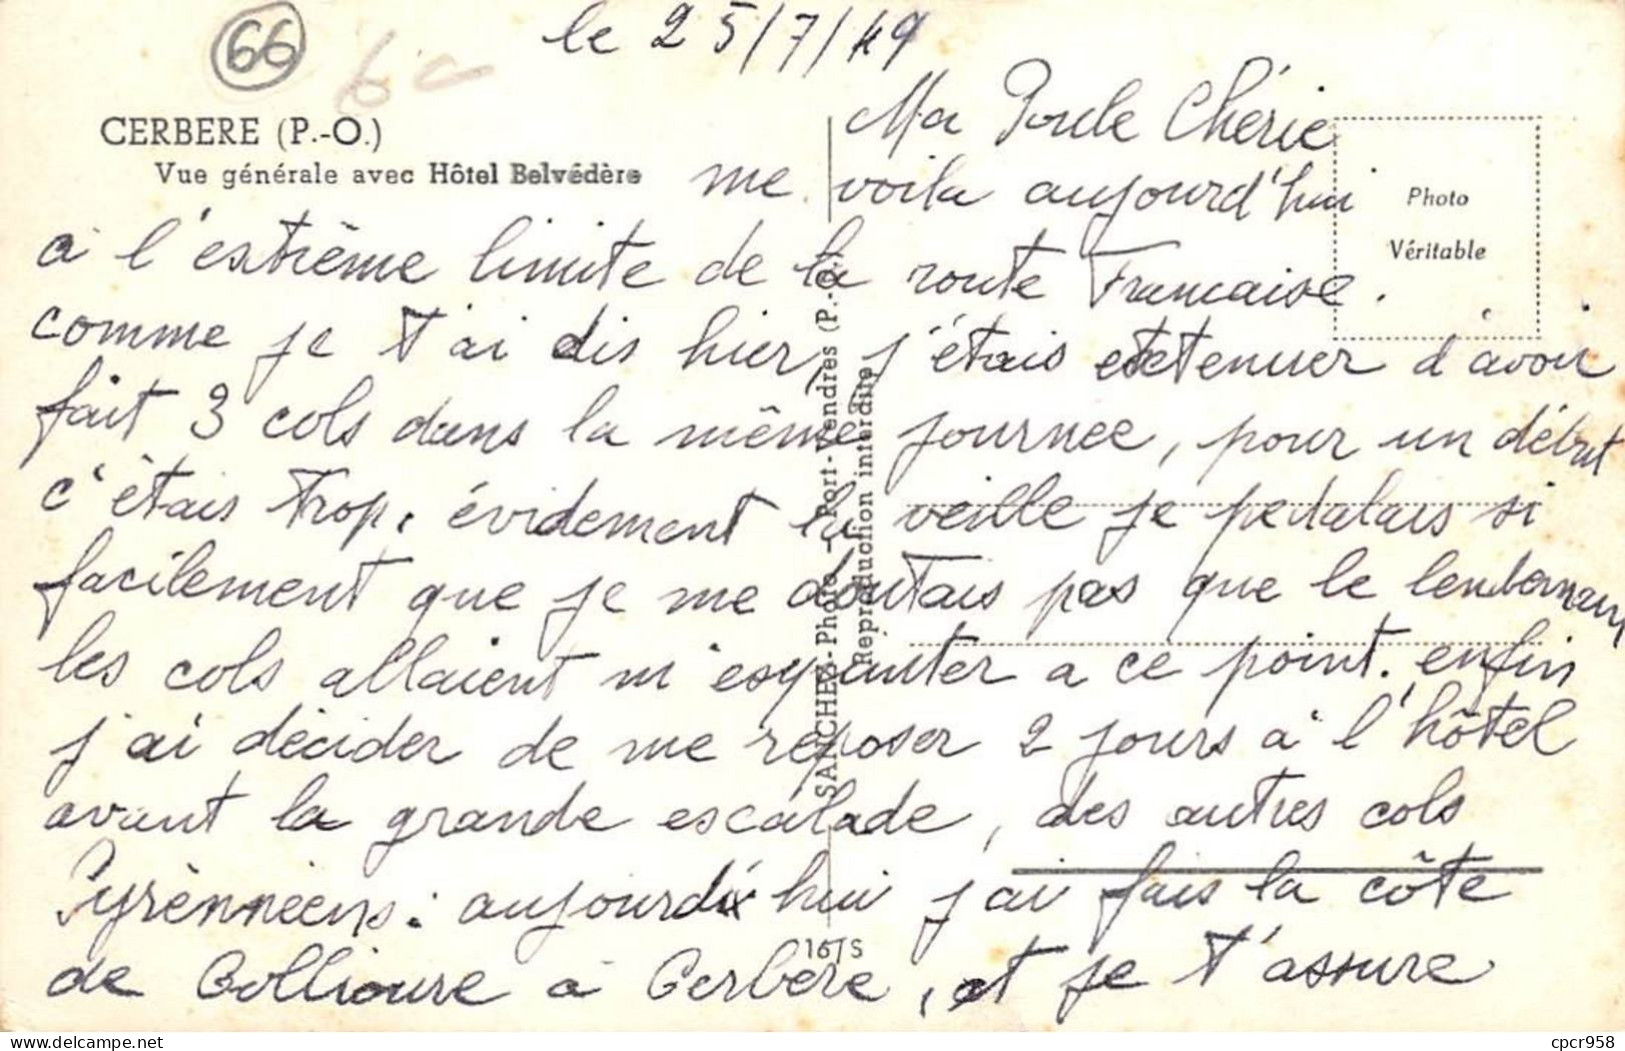 66
le 25/7/49
CERBERE (P.-O.)
Vue générale avec Hôtel Belvédère
Photo
Véritable
SANCHEZ-Photo - Port-Vendres (P.-O.)
Reproduction interdite
Ma Poule Chérie
me voila aujourd'hui
à l'estrême limite de la route Francaise.
comme je t'ai dis hier, j'étais extenuer d'avoir
fait 3 cols dans la même journee, pour un début
c'étais trop, évidement la veille je pedalais si
facilement que je me doutais pas que le lendemain
les cols allaient m'esquinter a ce point. enfin
j'ai décider de me reposer 2 jours à l'hôtel
avant la grande escalade, des autres cols
Pyrénnéens: aujourd'hui j'ai fais la côte
de Collioure à Cerbère, et je t'assure
161S
cpcr958